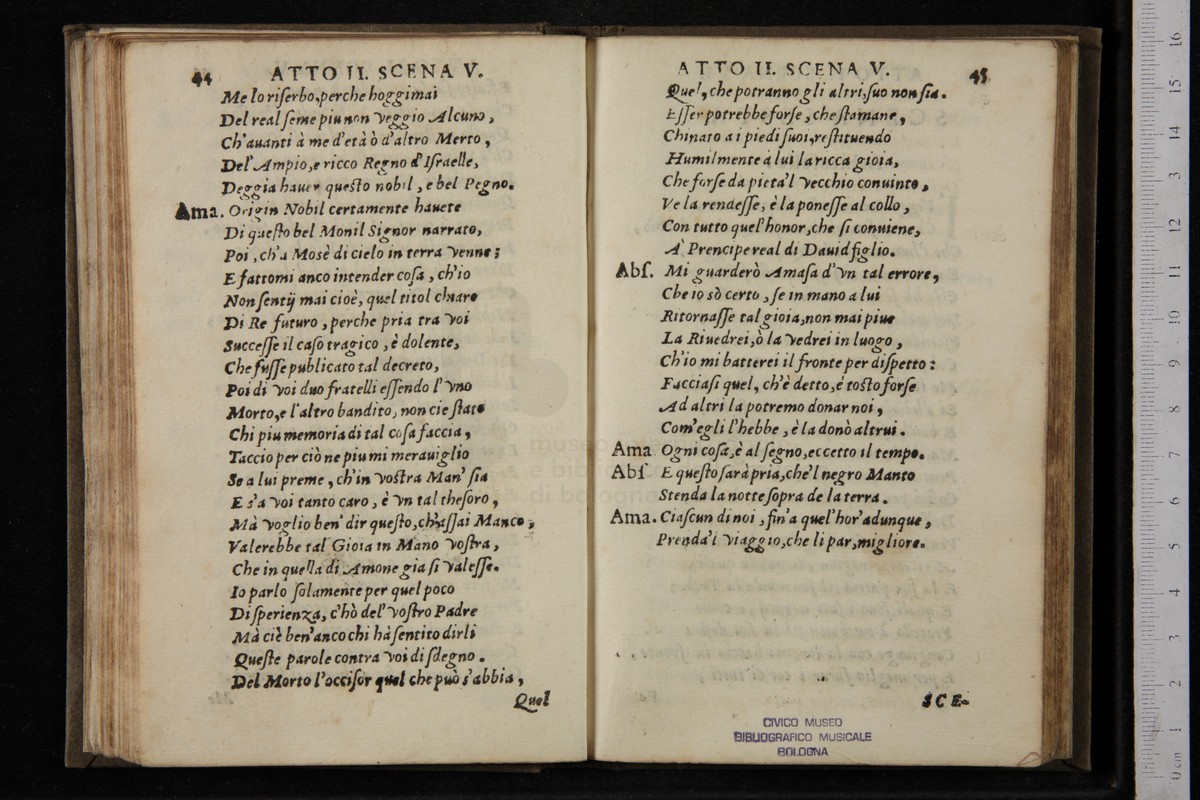 44
ATTO II. SCENA V.
Me lo riſerbo, perche hoggimai
Del real ſeme piu non veggio Alcuno,
Ch'auanti à me d'età ò d'altro Merto,
Del' Ampio, e ricco Regno d'Iſraelle,
Deggia hauer queſto nobil, e bel Pegno.
Ama. Origin Nobil certamente hauete
Di queſto bel Monil Signor narrato,
Poi, ch'a Mosè di cielo in terra venne;
E fattomi anco intender coſa, ch'io
Non ſentij mai cioè, quel titol chiaro
Di Re futuro, perche pria tra voi
Succeſſe il caſo tragico, è dolente,
Che fuſſe publicato tal decreto,
Poi di voi duo fratelli eſſendo l'vno
Morto, e l'altro bandito, non cie ſtato
Chi piu memoria di tal coſa faccia,
Taccio per ciò ne piu mi merauiglio
Se a lui preme, ch'in voſtra Man' ſia
E s'a voi tanto caro, è vn tal theſoro,
Mà voglio ben' dir queſto, ch'aſſai Manco,
Valerebbe tal Gioia in Mano voſtra,
Che in quella di Amone gia ſi valeſſe.
Io parlo ſolamente per quel poco
Di ſperienza, c'hò del' voſtro Padre
Mà ciè ben' anco chi hà ſentito dirli
Queſte parole contra voi di ſdegno.
Del Morto l'occiſor quel che può s'abbia,
Quel
ATTO II. SCENA V.
45
Quel, che potranno gli altri, ſuo non ſia.
Eſſer potrebbe forſe, che ſtamane,
Chinato a i piedi ſuoi, reſtituendo
Humilmente à lui la ricca gioia,
Che forſe da pieta'l vecchio conuinto,
Ve la rendeſſe, è la poneſſe al collo,
Con tutto quel' honor, che ſi conuiene,
A' Prencipe real di Dauid figlio.
Abſ. Mi guarderò Amaſa d'vn tal errore,
Che io sò certo, ſe in mano a lui
Ritornaſſe tal gioia, non mai piue
La Riuedrei, ò la vedrei in luogo,
Ch'io mi batterei il fronte per diſpetto:
Facciaſi quel, ch'è detto, è toſto forſe
Ad altri la potremo donar noi,
Com'egli l'hebbe, è la donò altrui.
Ama Ogni coſa, è al ſegno, eccetto il tempo.
Abſ E queſto ſarà pria, che'l negro Manto
Stenda la notte ſopra de la terra.
Ama. Ciaſcun di noi, fin'a quel' hor' adunque,
Prenda'l viaggio, che li par, migliore.
SCE-
CIVICO MUSEO
BIBLIOGRAFICO MUSICALE
BOLOGNA